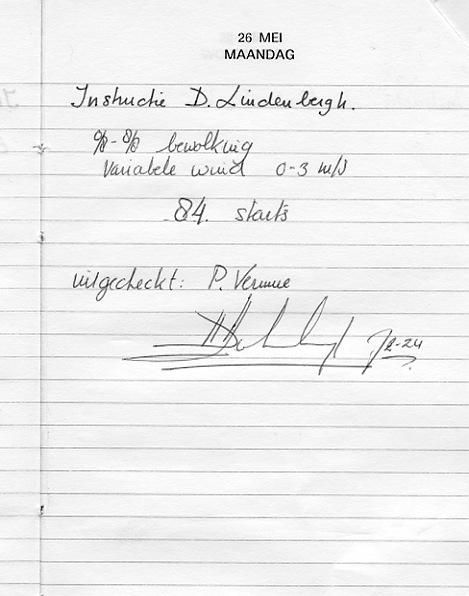 26 MEI
MAANDAG
Instructie D. Lindenbergh.
bewolking
Variabele wind 0-3 m/s
84. starts
uitgecheckt: P. Vermue